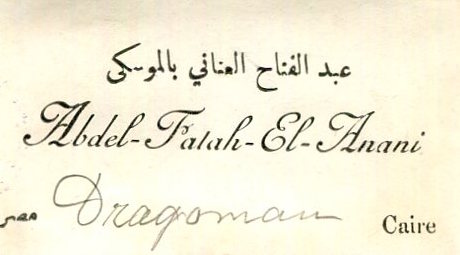 عبد الفتاح العناني بالموسكى
Abdel-Fatah-El-Anani
مصر Dragoman Caire